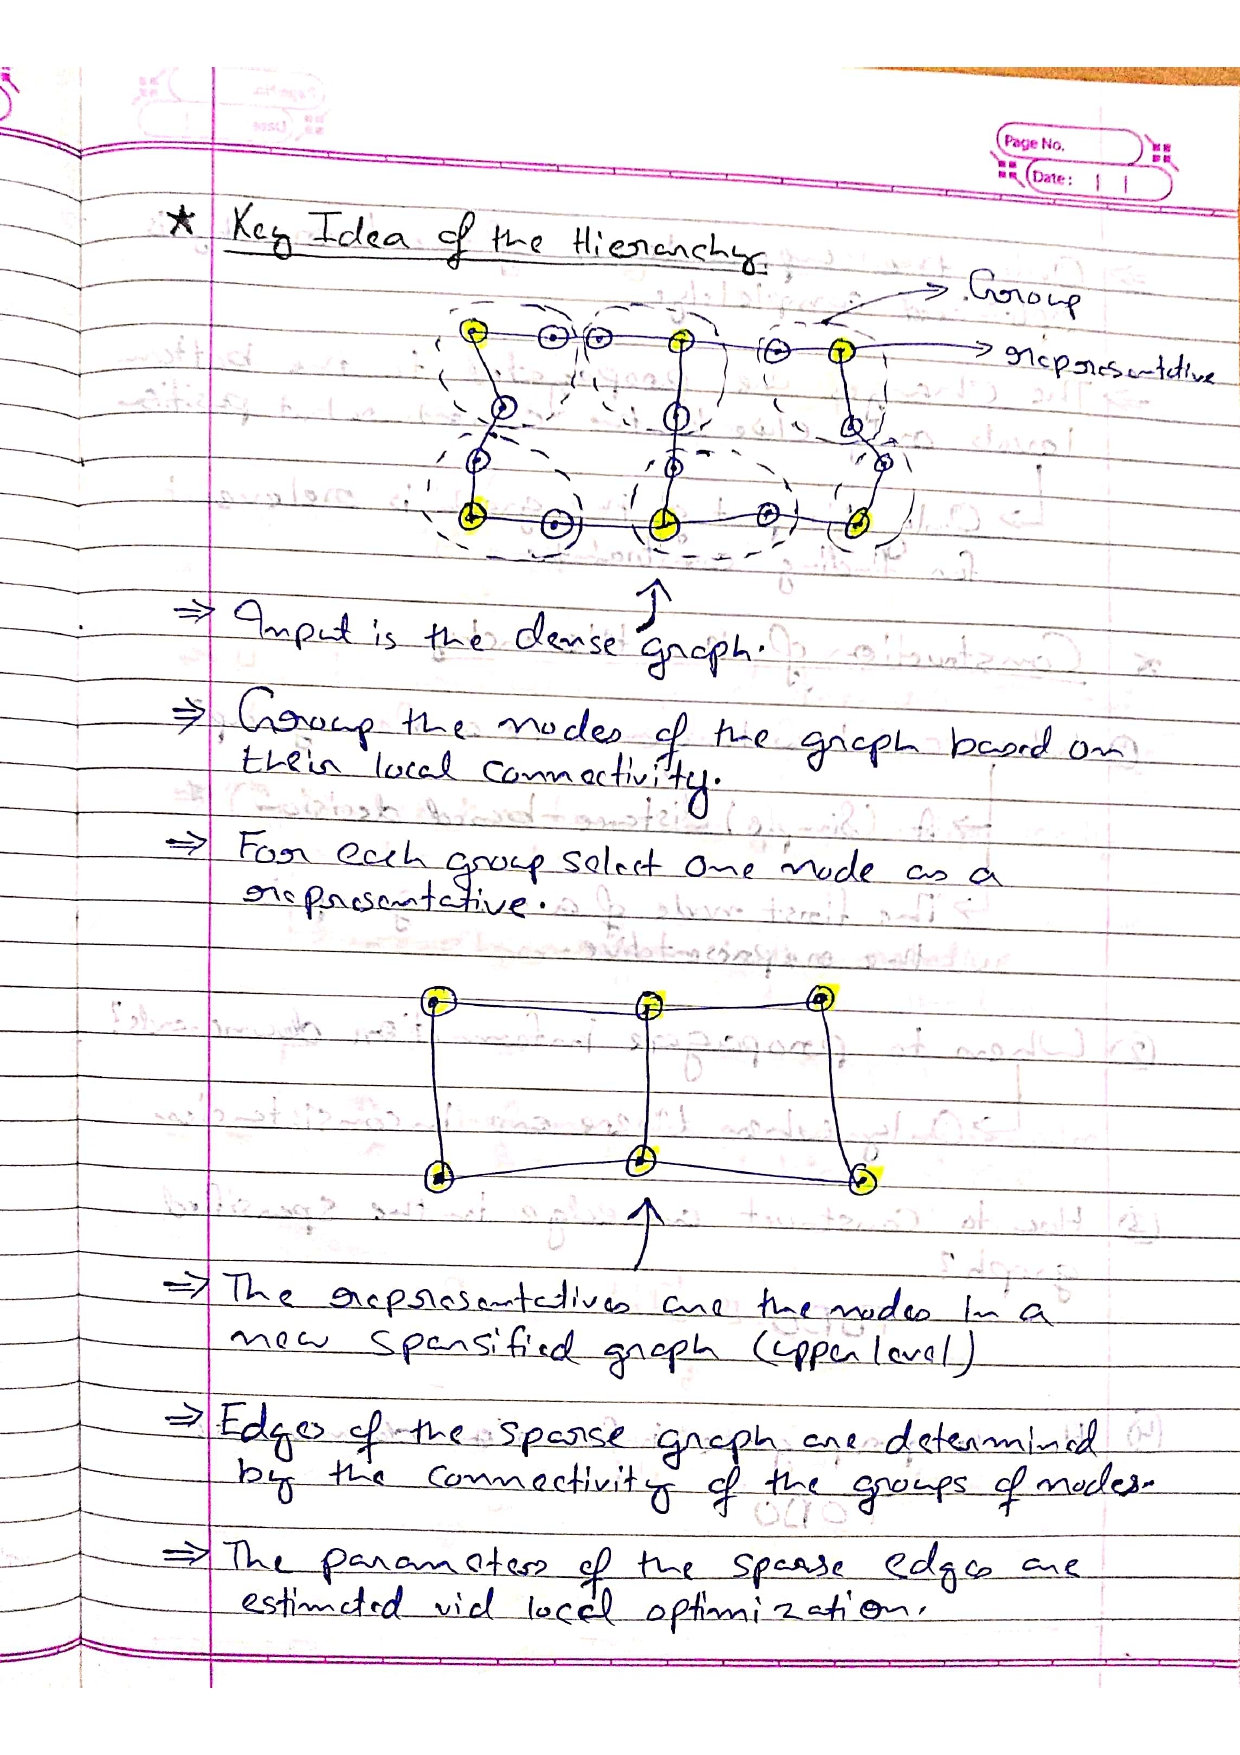 Page No.
Date:
★ Key Idea of the Hierarchy:
Group
representative
⇒ Input is the dense graph.
⇒ Group the nodes of the graph based on
their local connectivity.
⇒ For each group select one node as a
representative.
⇒ The representatives are the nodes in a
new sparsified graph (upper level)
⇒ Edges of the sparse graph are determined
by the connectivity of the groups of nodes.
⇒ The parameters of the sparse edges are
estimated via local optimization.